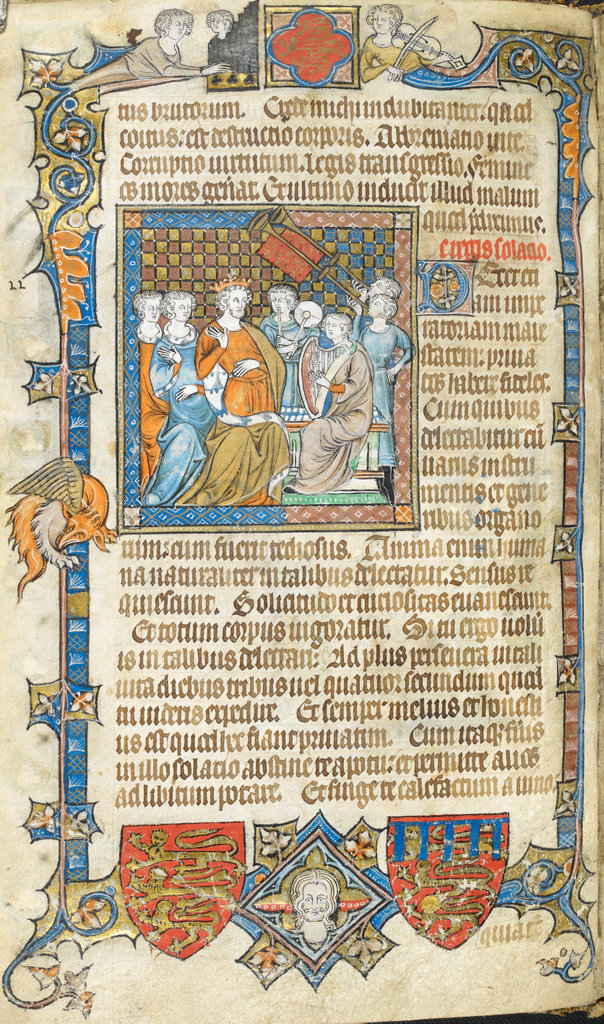 tus brutorum. Crede michi indubitanter. qd
coitus: est destructio corporis. Abbreuiatio uite.
Corruptio uirtutum. Legis transgressio. femine
os mores genat. Et ultimo inducit illud malum
quod pdiximus.
e regis solatio.
Decet eti
am impe
ratoriam maie
statem: priua
tos habere fideles.
Cum quibus
delectabitur cū
uariis instru
mentis et gene
ribus organo
rum: cum fuerit tediosus. Anima enim huma
na naturaliter in talibus delectatur. Sensus re
quiescunt. Solicitudo et curiositas euanescunt.
Et totum corpus uigoratur. Si tu ergo uolu
is in talibus delectari: Ad plus perseuera in tali
uita diebus tribus uel quatuor secundum quod
tu uideris expedire. Et semper melius et honesti
us est quod hec fiant priuatim. Cum itaq fuis
in illo solatio abstine te a potu: et permitte alios
ad libitum potare. Et finge te calefactum a uino
22